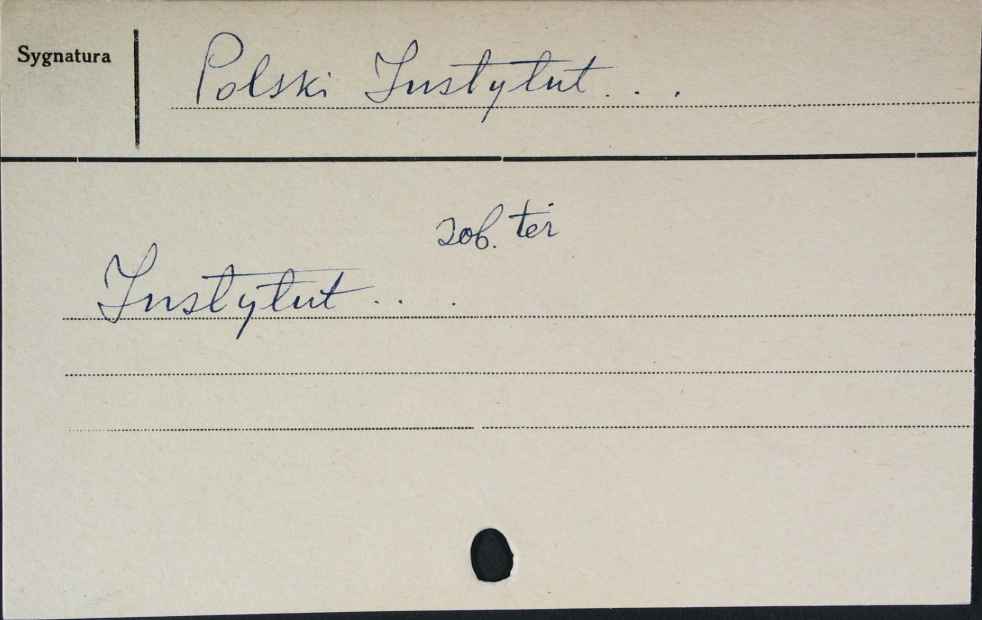 Sygnatura
Polski Instytut...
zob. też
Instytut...